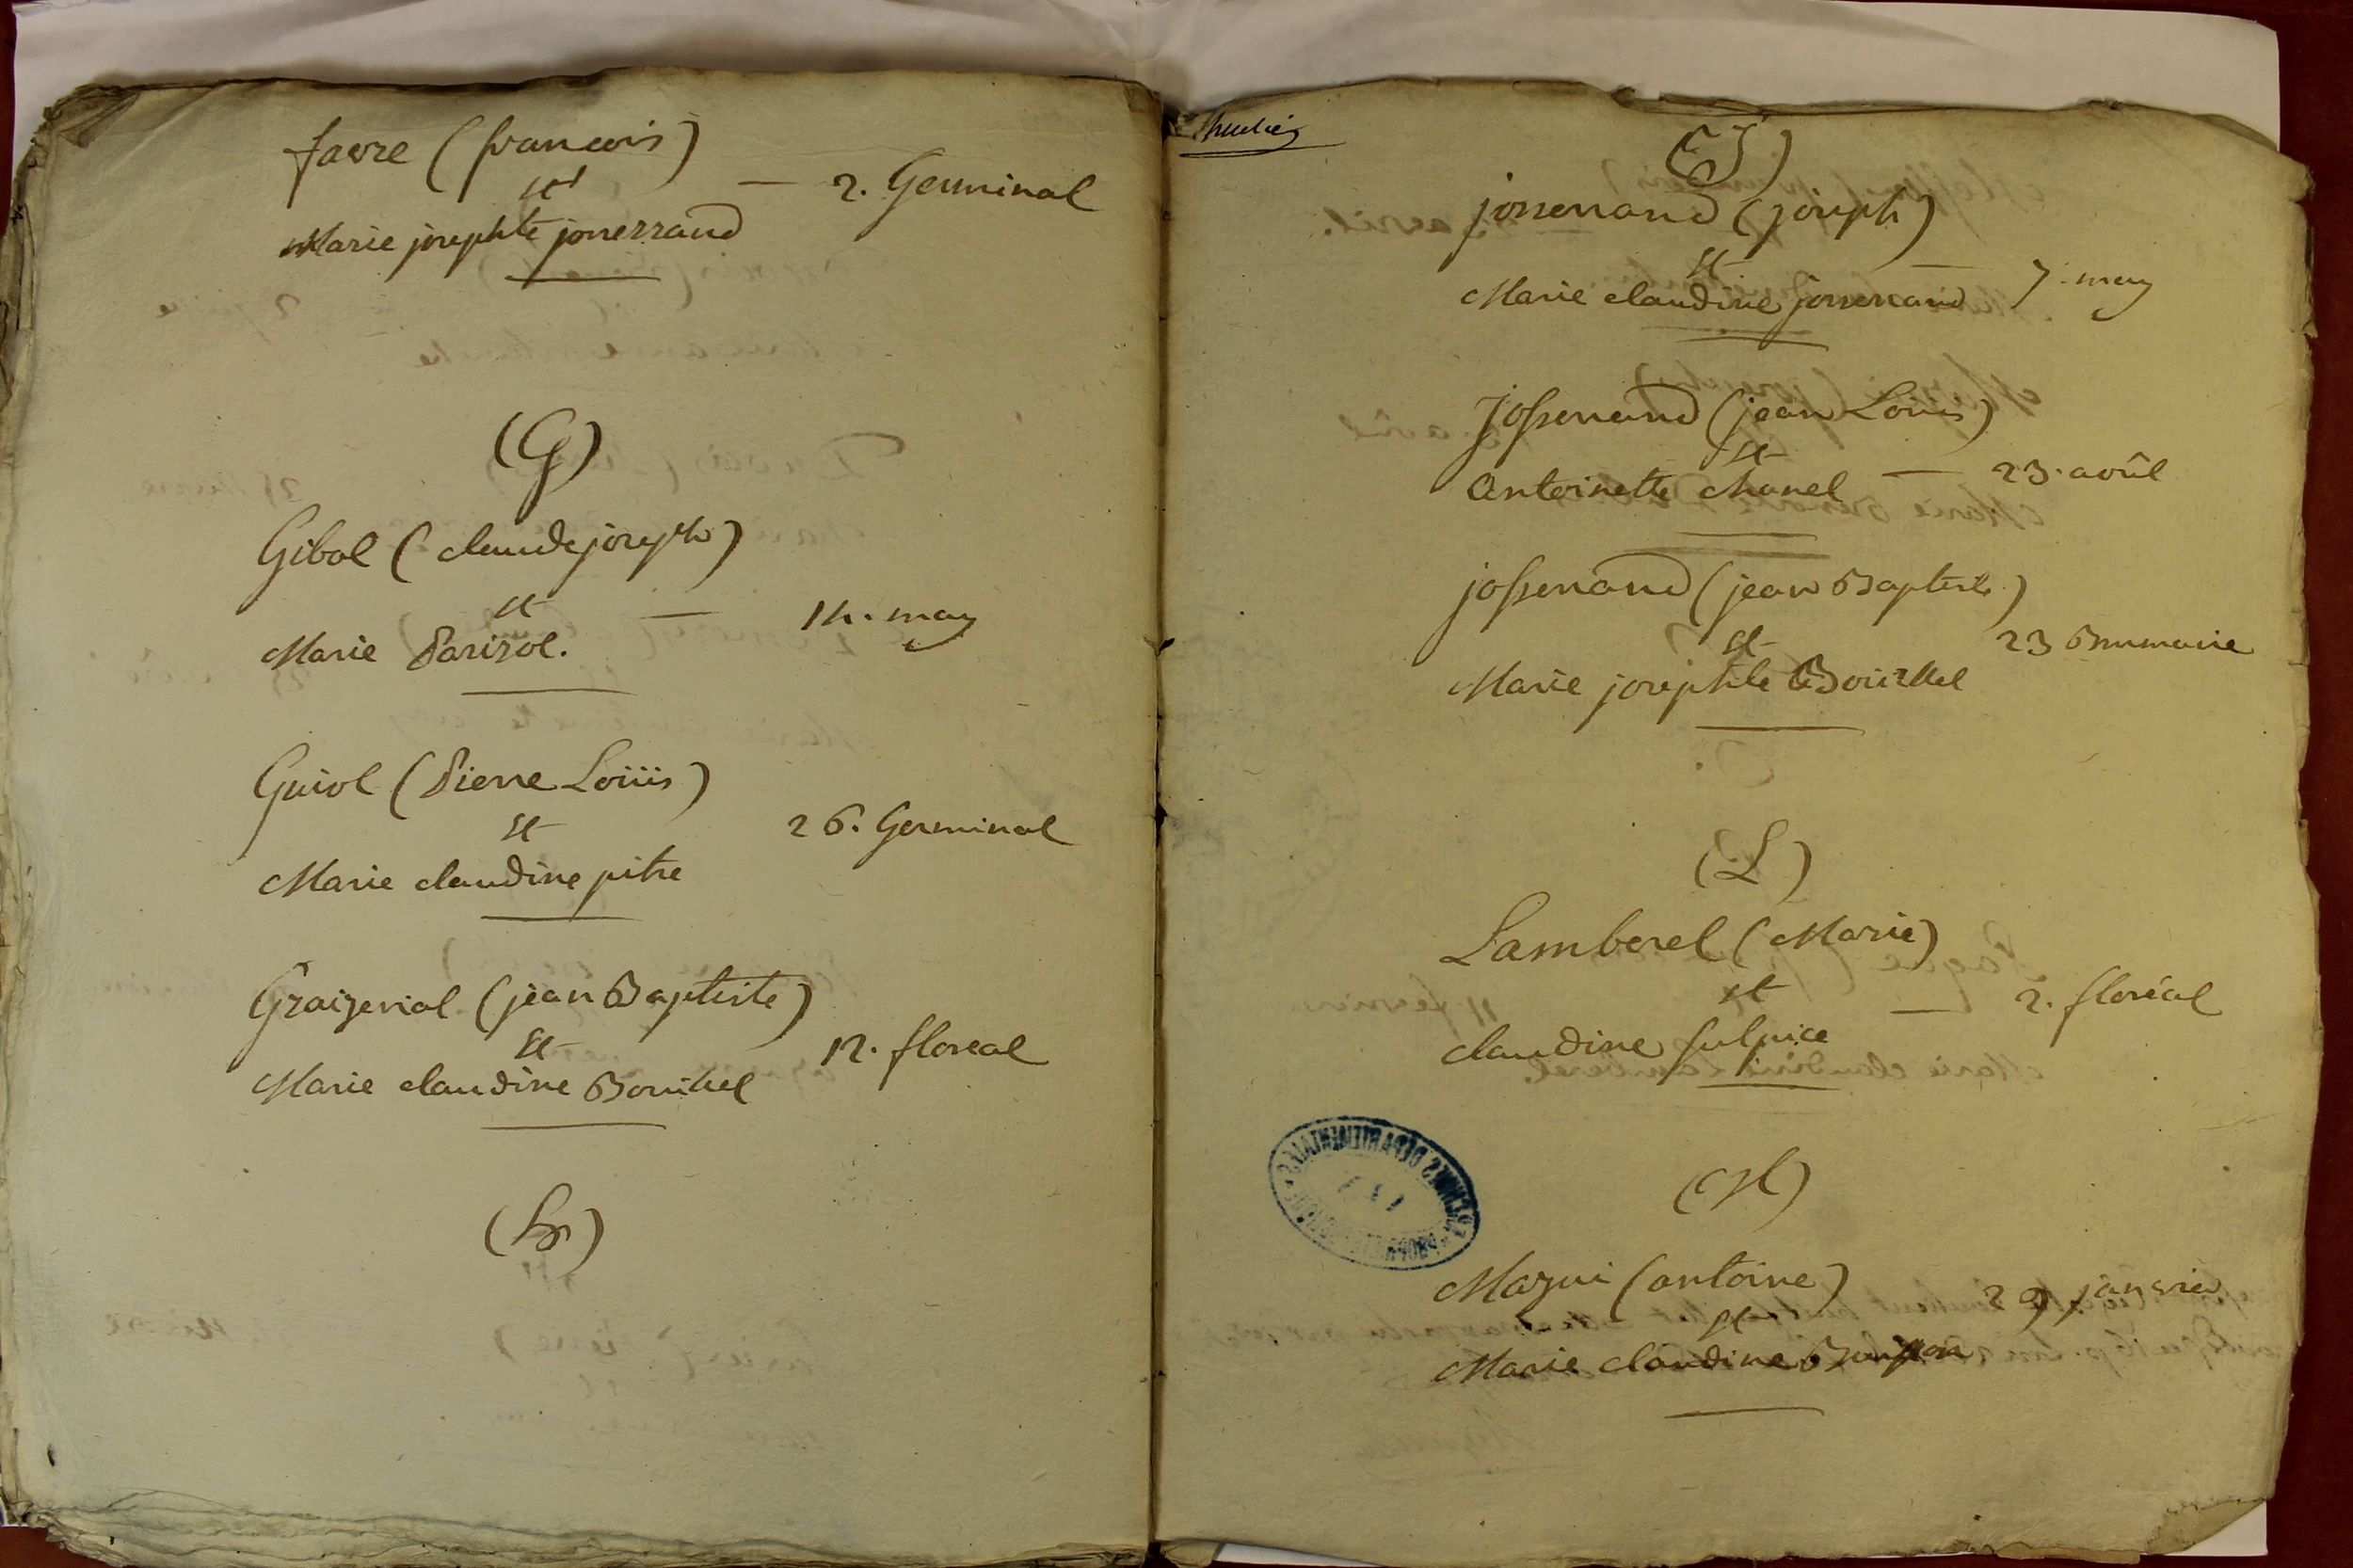 favre (francois)
et
— 2. Germinal
Marie josephte josserand
(G)
Gibol (claude joseph)
et
— 14. may
Marie Parizol.
Guiol (Pierre Loüis)
et
26. Germinal
Marie claudine pitre
Graizeriat (jean Baptiste)
et
12. floreal
Marie claudine Bouillet
(h)
(J)
josserand (joseph)
et
— 7. may
Marie claudine josserand
Josserand (jean Louis)
et
Antoinette chanel — 23. avril
josserand (jean Baptiste)
et
23 Brumaire
Marie josephte Bouillet
(L)
Lamberet (Marie)
et
— 2. floréal
claudine sulpice
(M)
Mazui (antoine)
29 janvier
et
Marie claudine